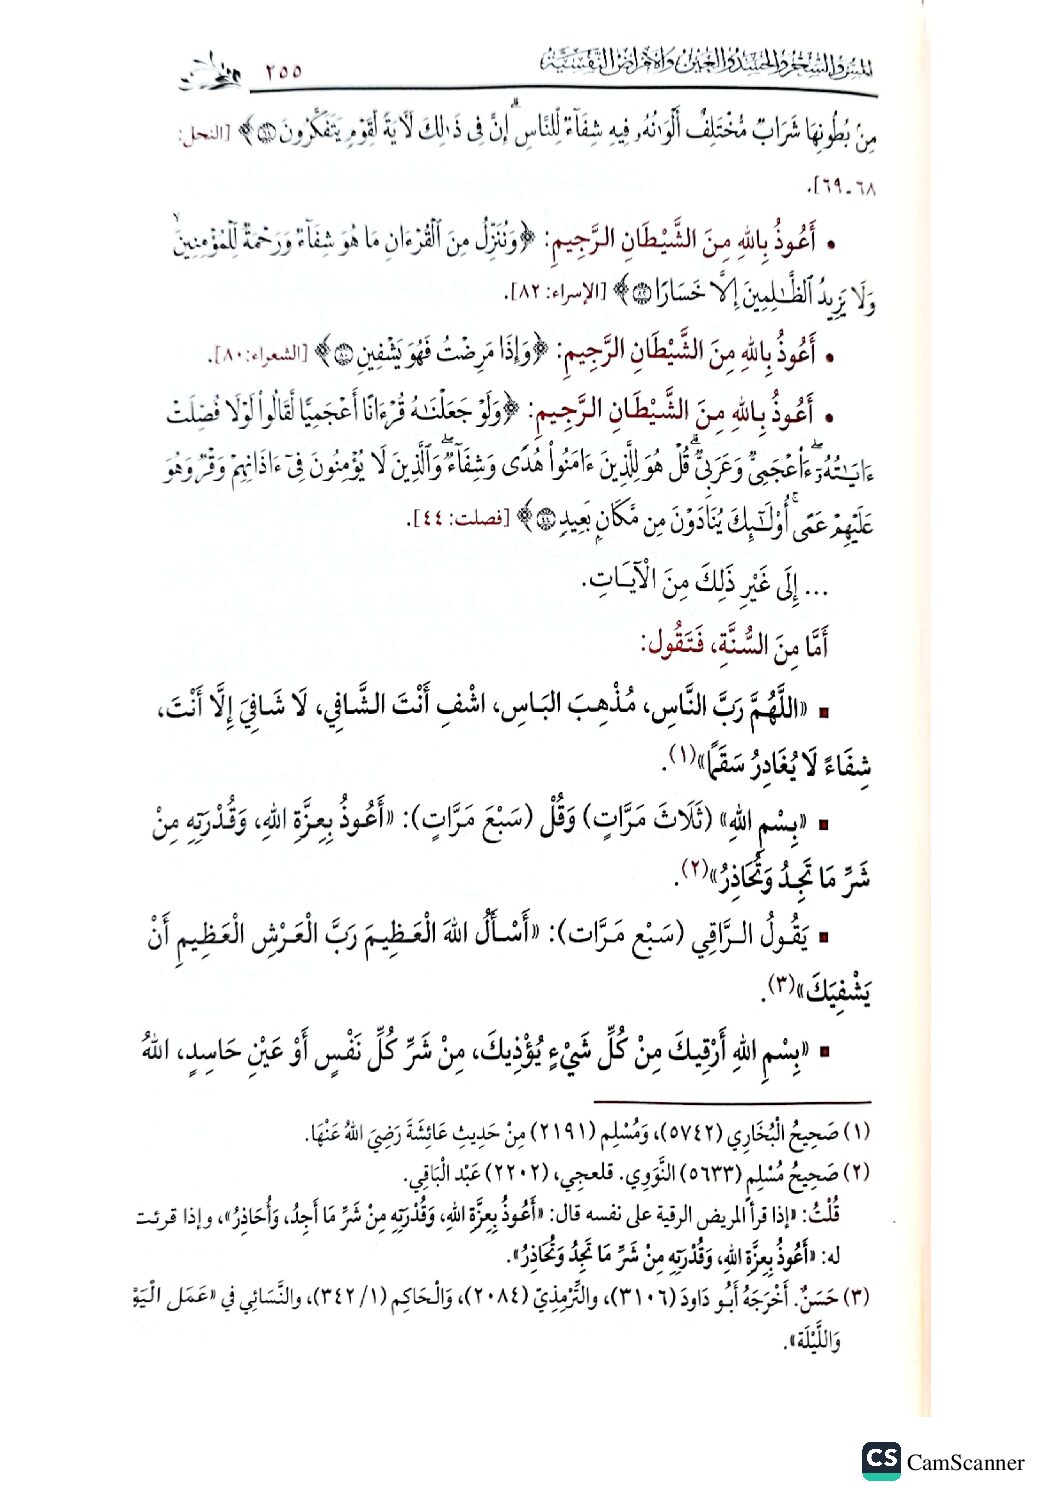 المس والسحر والحسد والعين والأمراض النفسية ٢٥٥
مِنْ بُطُونِهَا شَرَابٌ مُّخْتَلِفٌ أَلْوَانُهُۥ فِيهِ شِفَآءٌ لِّلنَّاسِ ۗ إِنَّ فِى ذَٰلِكَ لَآيَةً لِّقَوْمٍ يَتَفَكَّرُونَ ﴿٦٩﴾ [النحل:
٦٨-٦٩].
• أَعُوذُ بِاللهِ مِنَ الشَّيْطَانِ الرَّجِيمِ: ﴿وَنُنَزِّلُ مِنَ ٱلْقُرْءَانِ مَا هُوَ شِفَآءٌ وَرَحْمَةٌ لِّلْمُؤْمِنِينَ ۙ
وَلَا يَزِيدُ ٱلظَّٰلِمِينَ إِلَّا خَسَارًا ٨٢﴾ [الإسراء: ٨٢].
• أَعُوذُ بِاللهِ مِنَ الشَّيْطَانِ الرَّجِيمِ: ﴿وَإِذَا مَرِضْتُ فَهُوَ يَشْفِينِ ٨٠﴾ [الشعراء: ٨٠].
• أَعُوذُ بِاللهِ مِنَ الشَّيْطَانِ الرَّجِيمِ: ﴿وَلَوْ جَعَلْنَٰهُ قُرْءَانًا أَعْجَمِيًّا لَّقَالُوا۟ لَوْلَا فُصِّلَتْ
ءَايَٰتُهُۥٓ ۖ ءَا۬عْجَمِىٌّ وَعَرَبِىٌّ ۗ قُلْ هُوَ لِلَّذِينَ ءَامَنُوا۟ هُدًى وَشِفَآءٌ ۖ وَٱلَّذِينَ لَا يُؤْمِنُونَ فِىٓ ءَاذَانِهِمْ وَقْرٌ وَهُوَ
عَلَيْهِمْ عَمًى ۚ أُو۟لَٰٓئِكَ يُنَادَوْنَ مِن مَّكَانٍۭ بَعِيدٍ ٤٤﴾ [فصلت: ٤٤].
... إِلَى غَيْرِ ذَلِكَ مِنَ الْآيَاتِ.
أَمَّا مِنَ السُّنَّةِ، فَتَقُول:
▪ «اللَّهُمَّ رَبَّ النَّاسِ، مُذْهِبَ البَاسِ، اشْفِ أَنْتَ الشَّافِي، لَا شَافِيَ إِلَّا أَنْتَ،
شِفَاءً لَا يُغَادِرُ سَقَمًا»(١).
▪ «بِسْمِ اللهِ» (ثَلَاثَ مَرَّاتٍ) وَقُلْ (سَبْعَ مَرَّاتٍ): «أَعُوذُ بِعِزَّةِ اللهِ، وَقُدْرَتِهِ مِنْ
شَرِّ مَا تَجِدُ وَتُحَاذِرُ»(٢).
▪ يَقُولُ الرَّاقِي (سَبْع مَرَّات): «أَسْأَلُ اللهَ الْعَظِيمَ رَبَّ الْعَرْشِ الْعَظِيمِ أَنْ
يَشْفِيَكَ»(٣).
▪ «بِسْمِ اللهِ أَرْقِيكَ مِنْ كُلِّ شَيْءٍ يُؤْذِيكَ، مِنْ شَرِّ كُلِّ نَفْسٍ أَوْ عَيْنِ حَاسِدٍ، اللهُ
(١) صَحِيحُ الْبُخَارِي (٥٧٤٢)، وَمُسْلِم (٢١٩١) مِنْ حَدِيثِ عَائِشَةَ رَضِيَ اللهُ عَنْهَا.
(٢) صَحِيحُ مُسْلِمٍ (٥٦٣٣) النَّوَوِي. قلعجي، (٢٢٠٢) عَبْد الْبَاقِي.
قُلْتُ: «إذا قرأ المريض الرقية على نفسه قال: «أَعُوذُ بِعِزَّةِ اللهِ، وَقُدْرَتِهِ مِنْ شَرِّ مَا أَجِدُ، وَأُحَاذِرُ»، وإذا قرئت
له: «أَعُوذُ بِعِزَّةِ اللهِ، وَقُدْرَتِهِ مِنْ شَرِّ مَا تَجِدُ وَتُحَاذِرُ».
(٣) حَسَنٌ. أَخْرَجَهُ أَبُو دَاودَ (٣١٠٦)، والتِّرْمِذِيّ (٢٠٨٤)، وَالْحَاكِم (١/ ٣٤٢)، والنَّسَائِي في «عَمَل الْيَوْ
وَاللَّيْلَة».
CS CamScanner